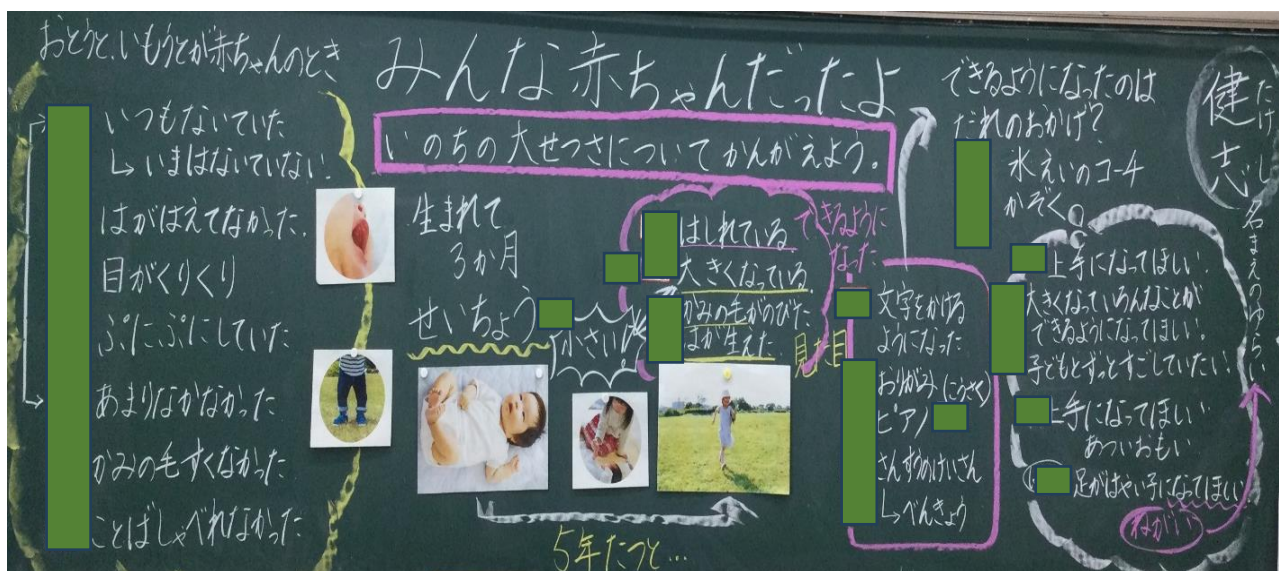 おとうと、いもうとが赤ちゃんのとき
いつもないていた
↳いまはないていない!
はがはえてなかった.
目がくりくり
ぷにぷにしていた
あまりなかなかった
かみの毛すくなかった
ことばしゃべれなかった
みんな赤ちゃんだったよ
いのちの大せつさについてかんがえよう。
生まれて
3か月
せいちょう
小さい
はしれている
大きくなっている
かみの毛がのびた
はが生えた
できるように
なった
見た目
5年たつと…
文字をかける
ようになった
おりがみ(こうさく)
ピアノ
さんすうのけいさん
↳べんきょう
できるようになったのは
だれのおかげ?
水えいのコーチ
かぞく
上手になってほしい.
大きくなっていろんなことが
できるようになってほしい!
子どもとずっとすごしていたい.
上手になってほしい
あついおもい
足がはやい子になってほしい
ねがい
健志
たけし
名まえのゆらい